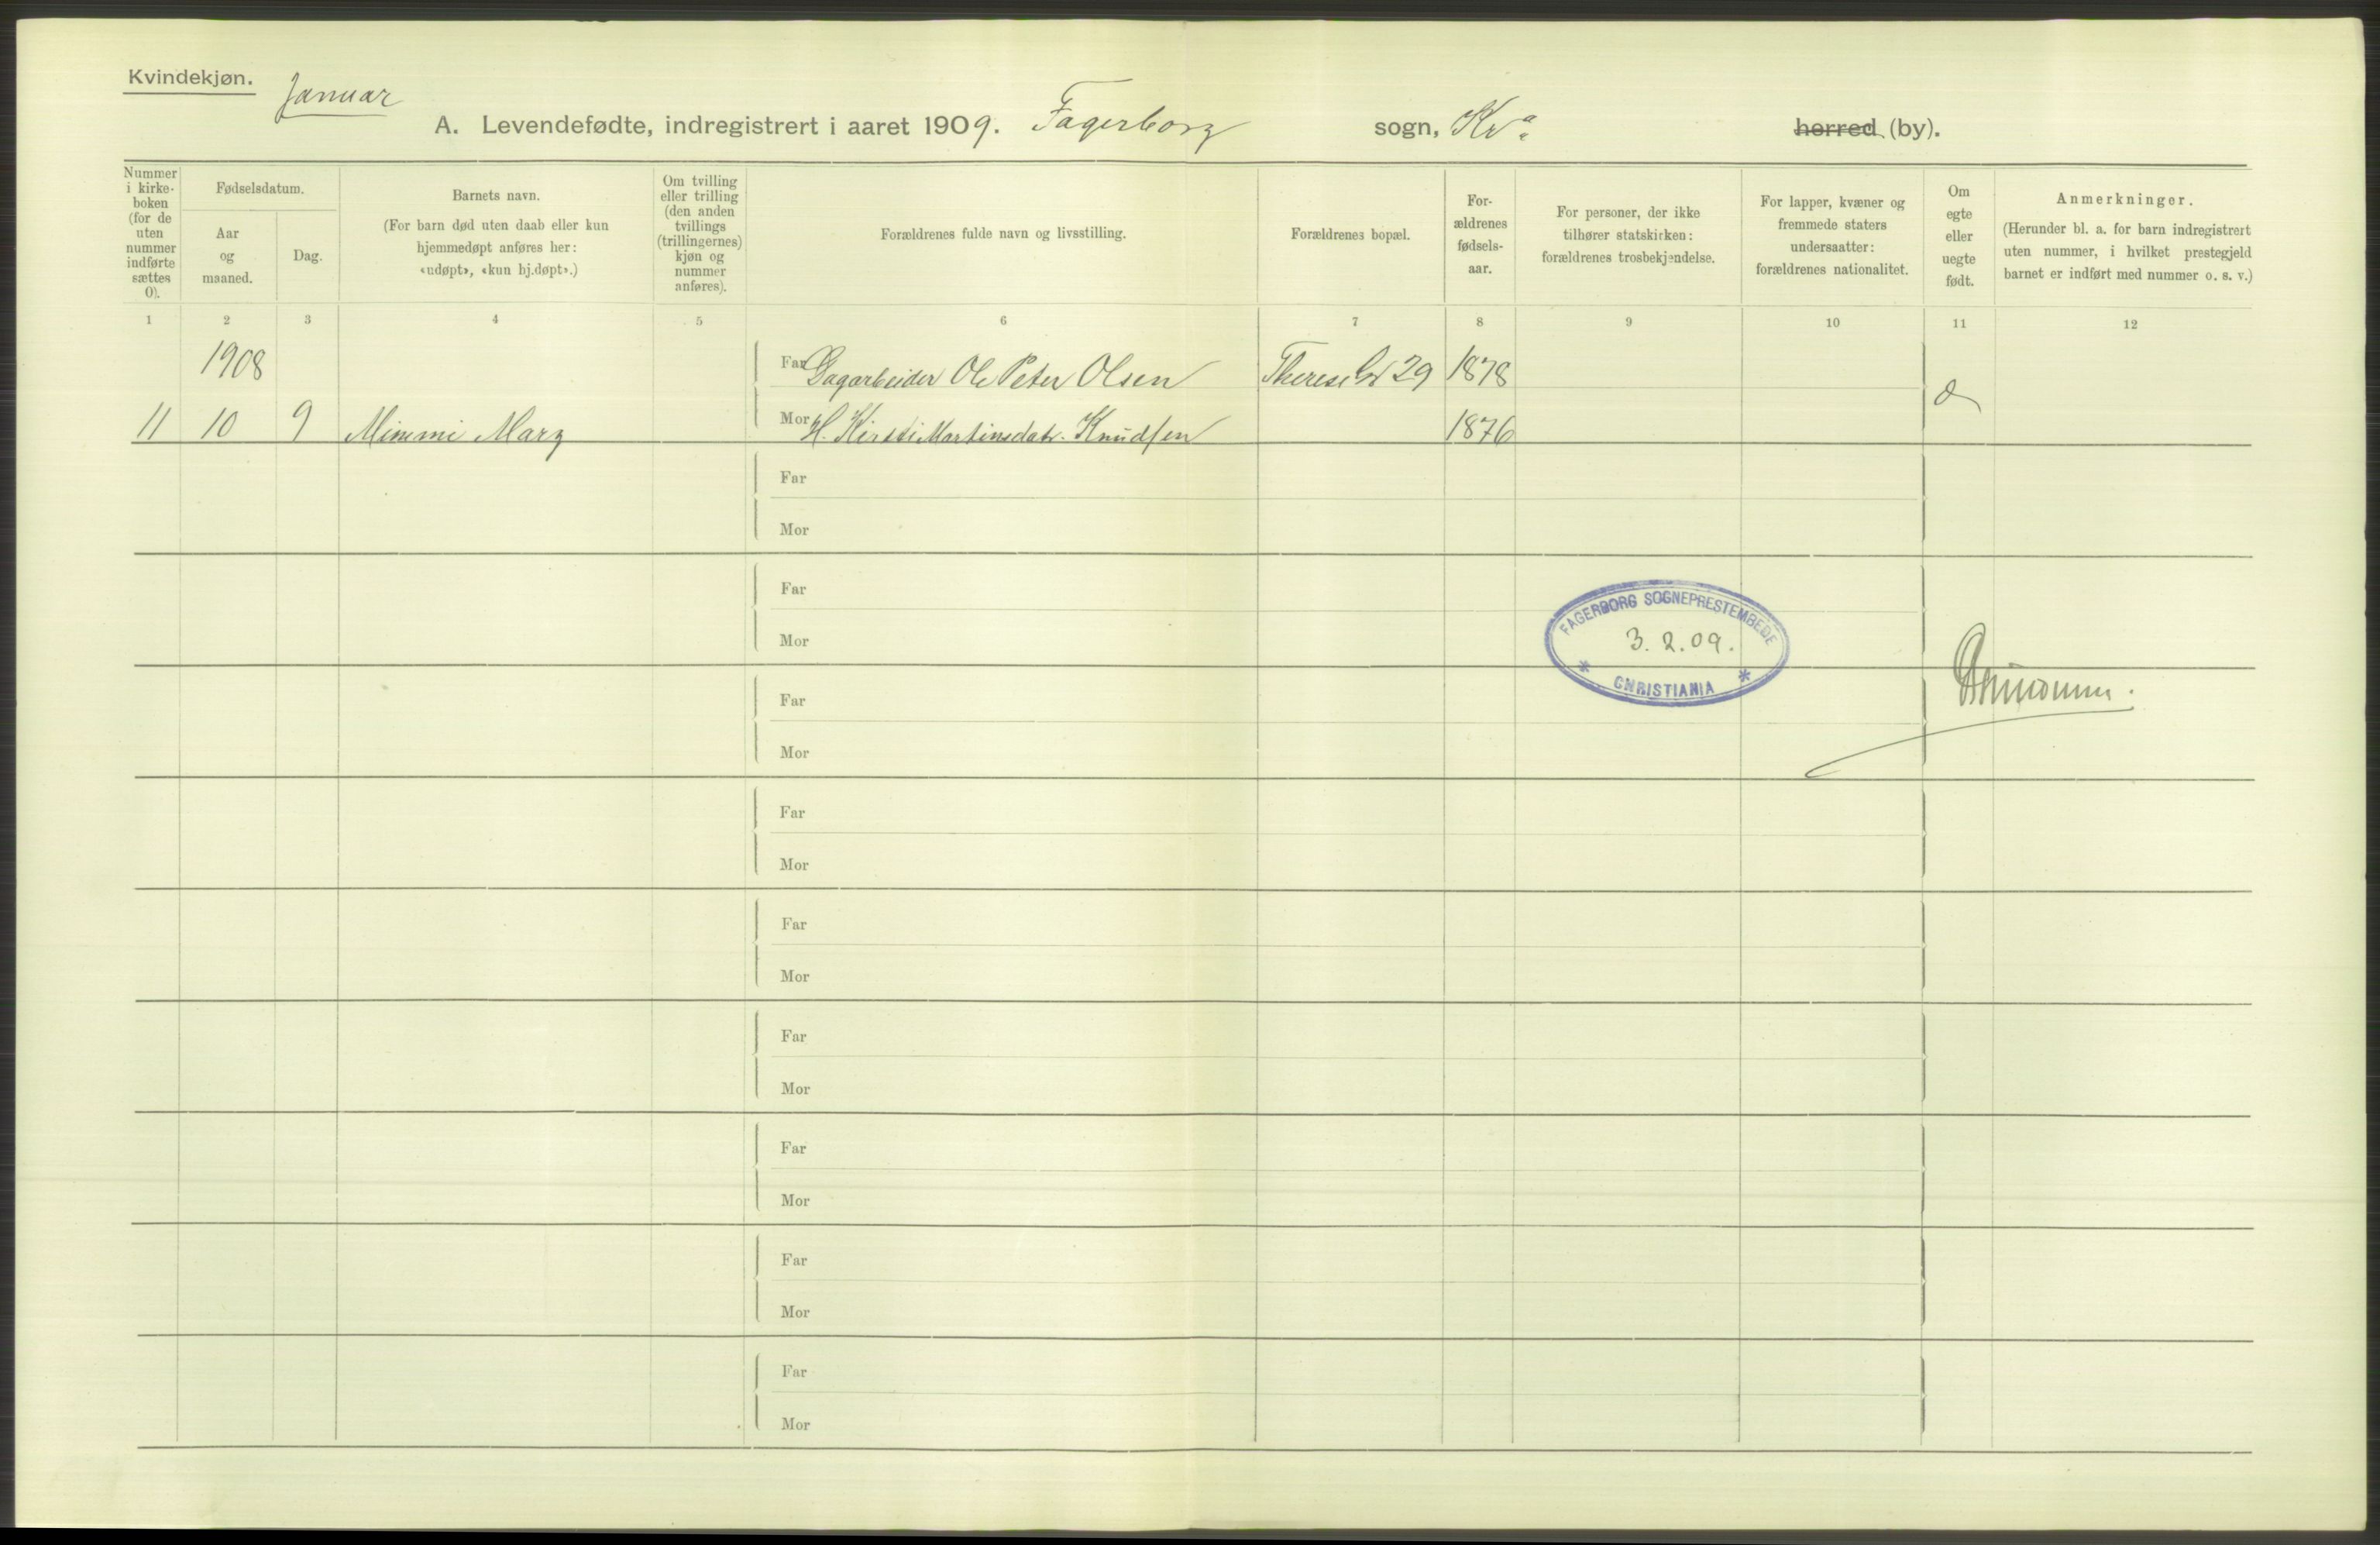 Kvindekjøn.
Januar
A. Levendefødte, indregistrert i aaret 1909. Fagerborg sogn, Kra herred (by).
Nummer i kirke-boken (for de uten nummer indførte sættes 0).
Fødselsdatum.
Aar og maaned.
Dag.
Barnets navn.
(For barn død uten daab eller kun hjemmedøpt anføres her: «udøpt», «kun hj.døpt».)
Om tvilling eller trilling (den anden tvillings (trillingernes) kjøn og nummer anføres).
Forældrenes fulde navn og livsstilling.
Forældrenes bopæl.
For-ældrenes fødsels-aar.
For personer, der ikke tilhører statskirken: forældrenes trosbekjendelse.
For lapper, kvæner og fremmede staters undersaatter: forældrenes nationalitet.
Om egte eller uegte født.
Anmerkninger.
(Herunder bl. a. for barn indregistrert uten nummer, i hvilket prestegjeld barnet er indført med nummer o. s. v.)
1 2 3 4 5 6 7 8 9 10 11 12
1908 Far Dagarbeider Ole Peter Olsen Therese Gd 29 1878
11 10 9 Mimmi Mary Mor H. Kirsti Martinsdatr. Knudsen 1876
Far
Mor
Far
Mor
FAGERBORG SOGNEPRESTEMBEDE
3. 2. 09.
CHRISTIANIA
Far
Mor
Far
Mor
Far
Mor
Far
Mor
Far
Mor
Far
Mor
Far
Mor